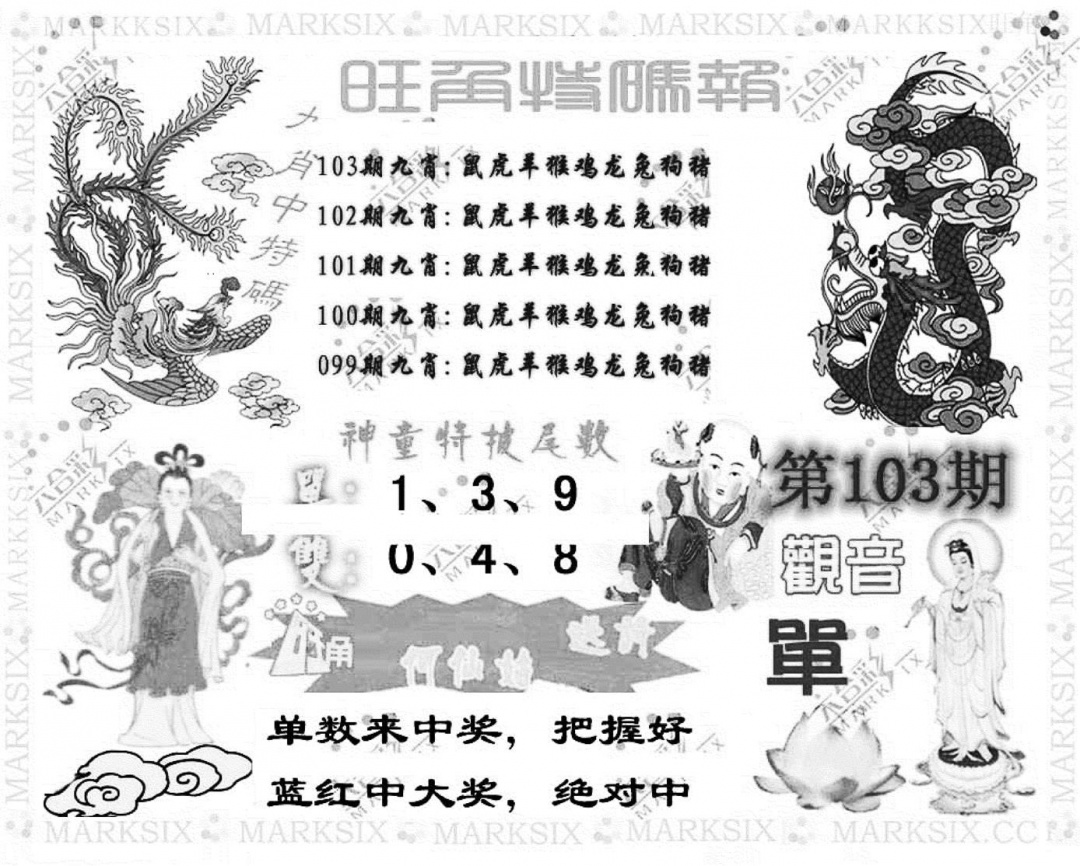 旺角特碼報
九肖中特碼
103期九肖：鼠虎羊猴鸡龙兔狗猪
102期九肖：鼠虎羊猴鸡龙兔狗猪
101期九肖：鼠虎羊猴鸡龙兔狗猪
100期九肖：鼠虎羊猴鸡龙兔狗猪
099期九肖：鼠虎羊猴鸡龙兔狗猪
神童特披尾數
1、3、9
雙：0、4、8
第103期
觀音
單
何仙姑
单数来中奖，把握好
蓝红中大奖，绝对中
MARKSIX
MARKSIX.CC